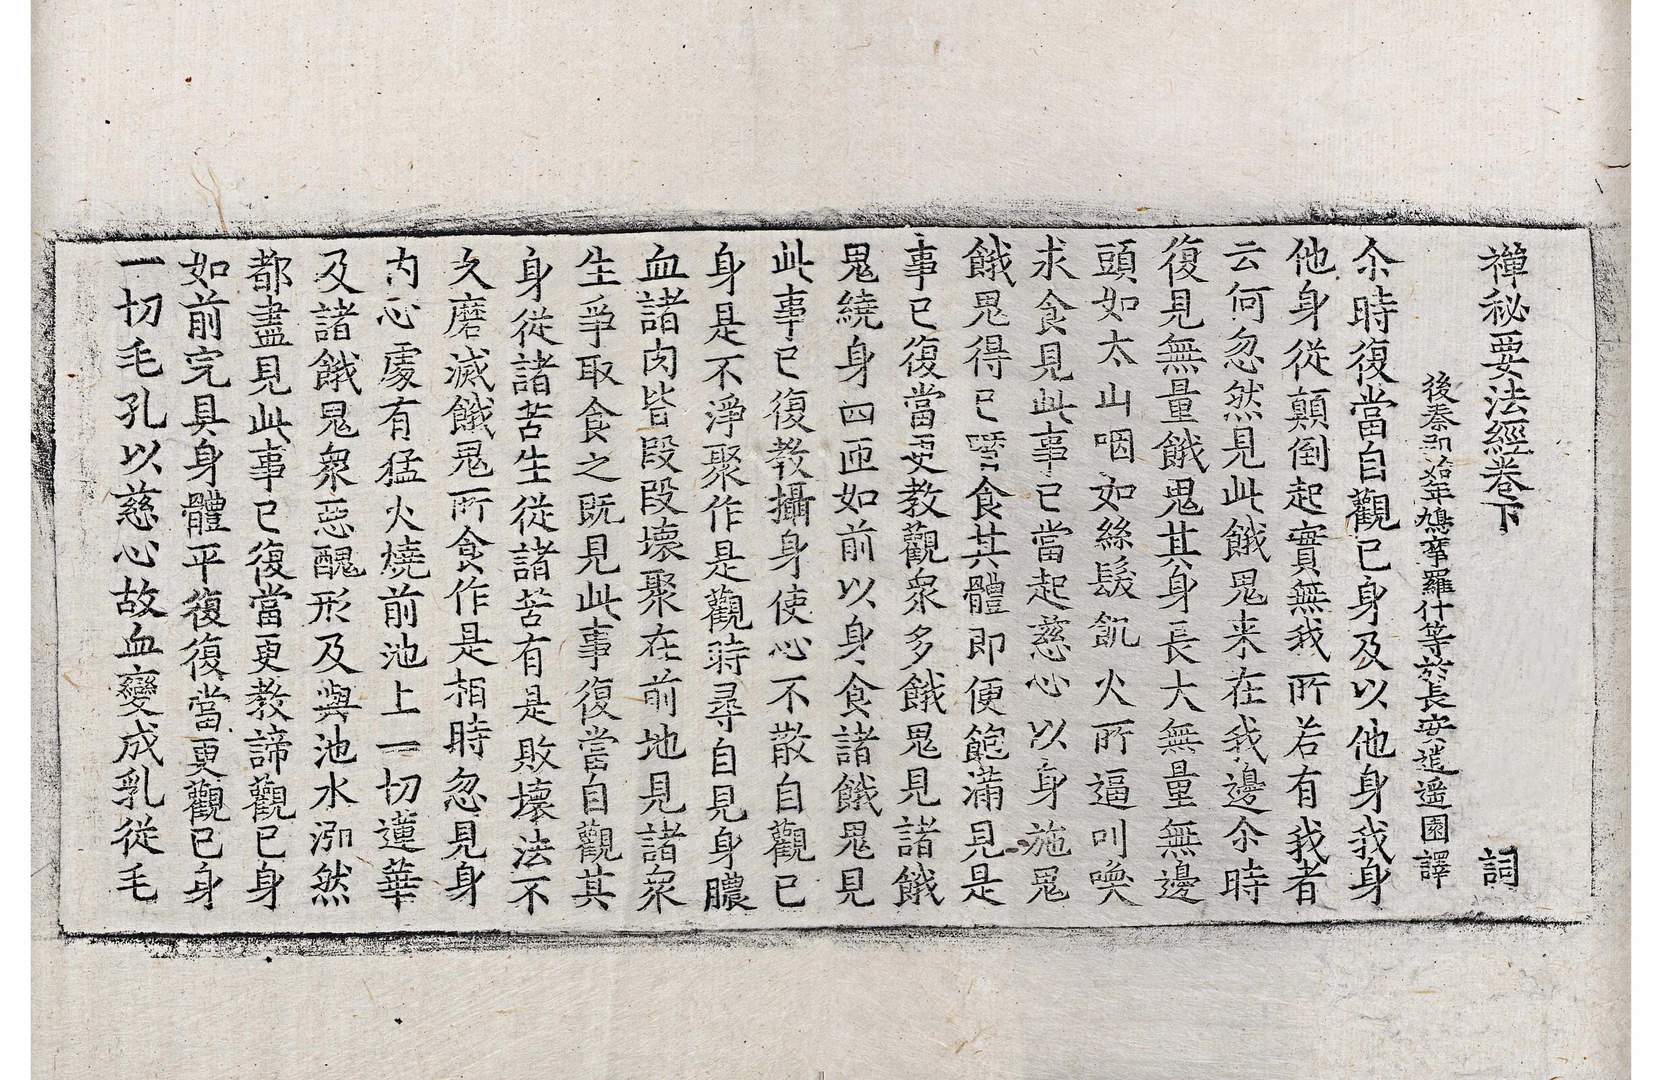 禪秘要法經卷下　詞
後秦弘始年鳩摩羅什等於長安逍遥園譯
尒時復當自觀已身及以他身我身
他身從顛倒起實無我所若有我者
云何忽然見此餓鬼来在我邊尒時
復見無量餓鬼其身長大無量無邊
頭如太山咽如絲髮飢火所逼叫喚
求食見此事已當起慈心以身施鬼
餓鬼得已噉食其體即便飽滿見是
事已復當更教觀衆多餓鬼見諸餓
鬼繞身四匝如前以身食諸餓鬼見
此事已復教攝身使心不散自觀已
身是不淨聚作是觀時尋自見身膿
血諸肉皆段段壞聚在前地見諸衆
生爭取食之既見此事復當自觀其
身從諸苦生從諸苦有是敗壞法不
久磨滅餓鬼所食作是相時忽見身
内心處有猛火燒前池上一切蓮華
及諸餓鬼衆惡醜形及與池水泯然
都盡見此事已復當更教諦觀已身
如前完具身體平復復當更觀已身
一切毛孔以慈心故血變成乳從毛